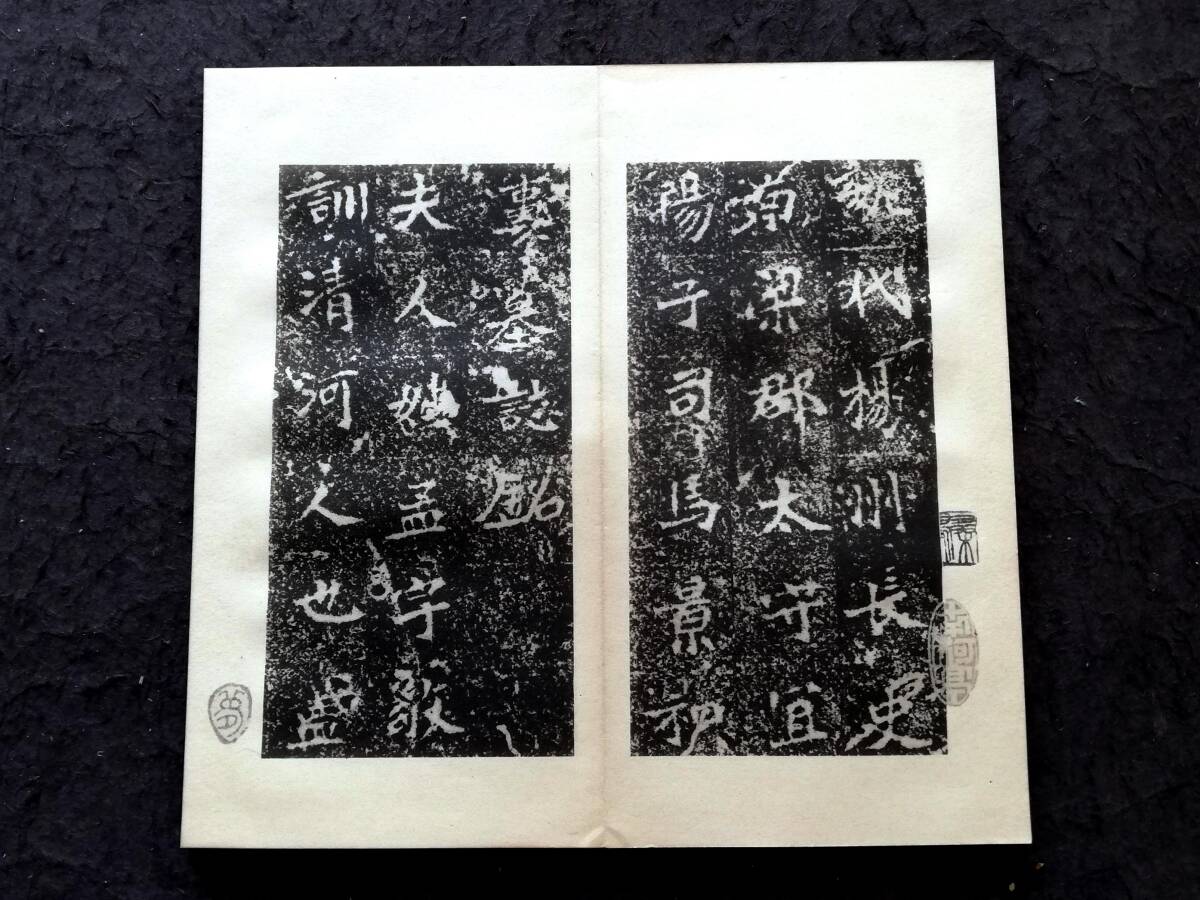 魏代楊州長史
南梁郡太守宜
陽子司馬景和
妻墓誌銘
夫人姓孟字敬
訓清河人也盖